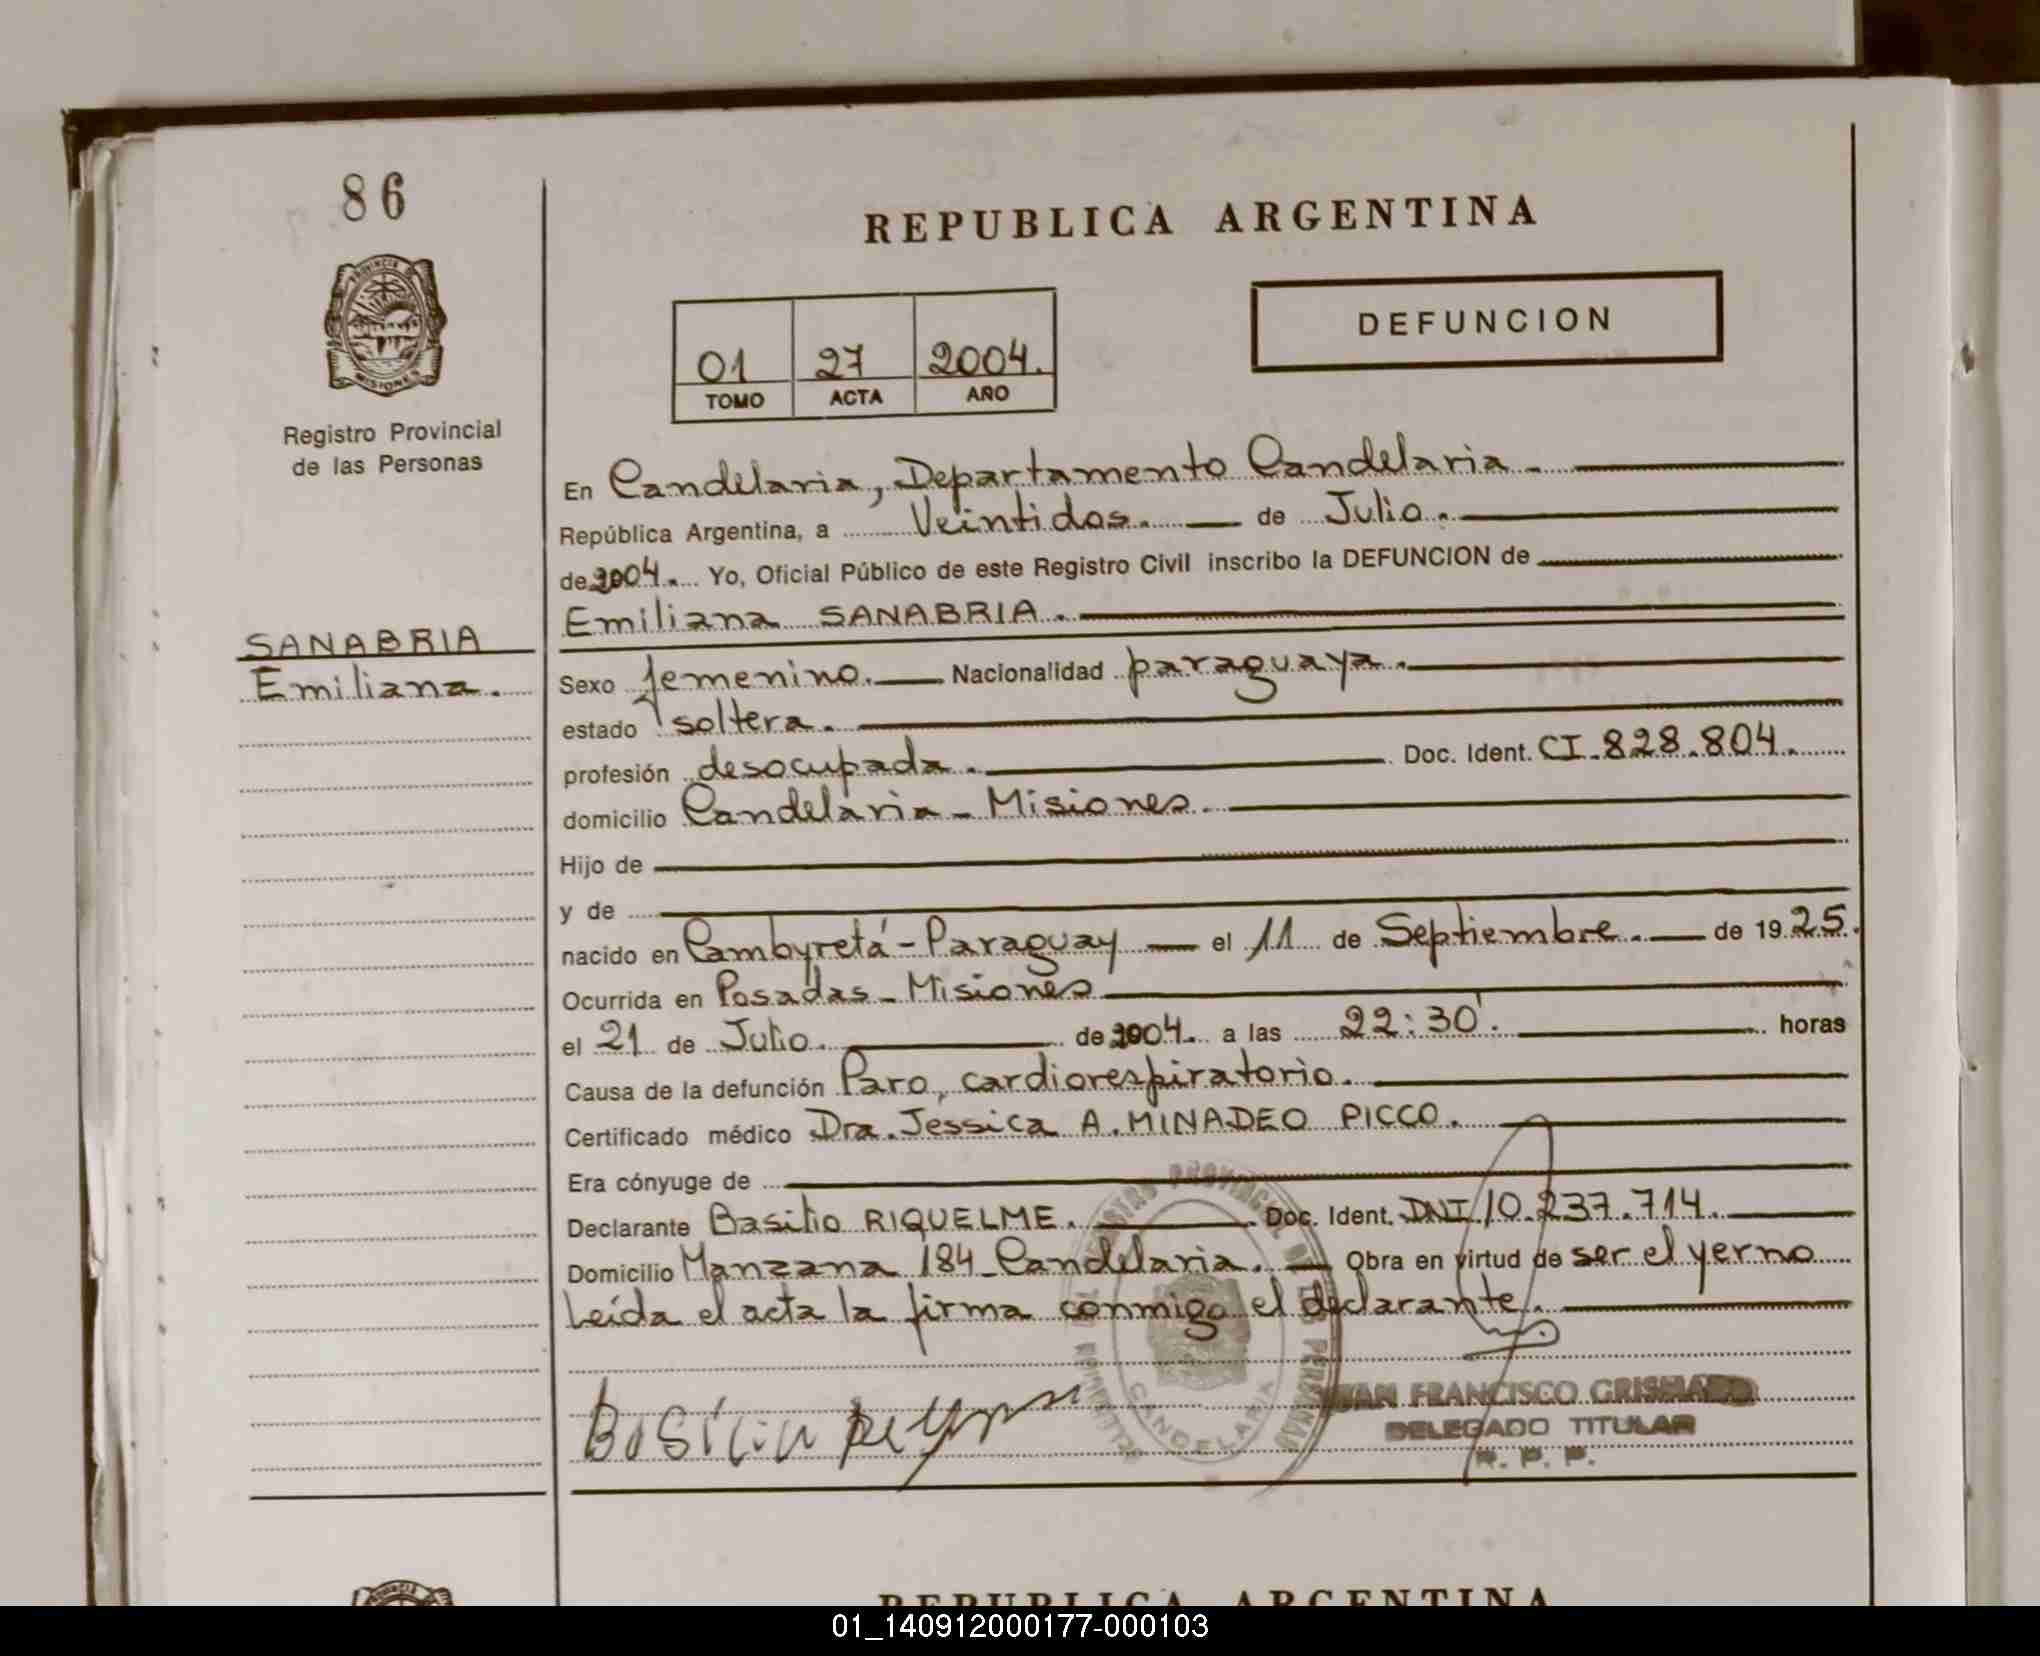 86
REPUBLICA ARGENTINA
PROVINCIA DE
MISIONES
Registro Provincial
de las Personas
01 27 2004.
TOMO ACTA AÑO
DEFUNCION
En Candelaria, Departamento Candelaria.
República Argentina, a Veintidos. de Julio.
de 2004. Yo, Oficial Público de este Registro Civil inscribo la DEFUNCION de
Emiliana SANABRIA.
SANABRIA
Emiliana.
Sexo femenino. Nacionalidad paraguaya.
estado soltera.
profesión desocupada. Doc. Ident. CI. 828.804.
domicilio Candelaria - Misiones.
Hijo de
y de
nacido en Cambyretá - Paraguay el 11 de Septiembre. de 1925.
Ocurrida en Posadas - Misiones
el 21 de Julio. de 2004. a las 22:30'. horas
Causa de la defunción Paro cardiorespiratorio.
Certificado médico Dra. Jessica A. MINADEO PICCO.
Era cónyuge de
Declarante Basilio RIQUELME. Doc. Ident. DNI 10.237.714.
Domicilio Manzana 184 - Candelaria. Obra en virtud de ser el yerno
Leída el acta la firma conmigo el declarante.
CANDELARIA
JUAN FRANCISCO GRISMADO
DELEGADO TITULAR
R. P. P.
REPUBLICA ARGENTINA
01_140912000177-000103